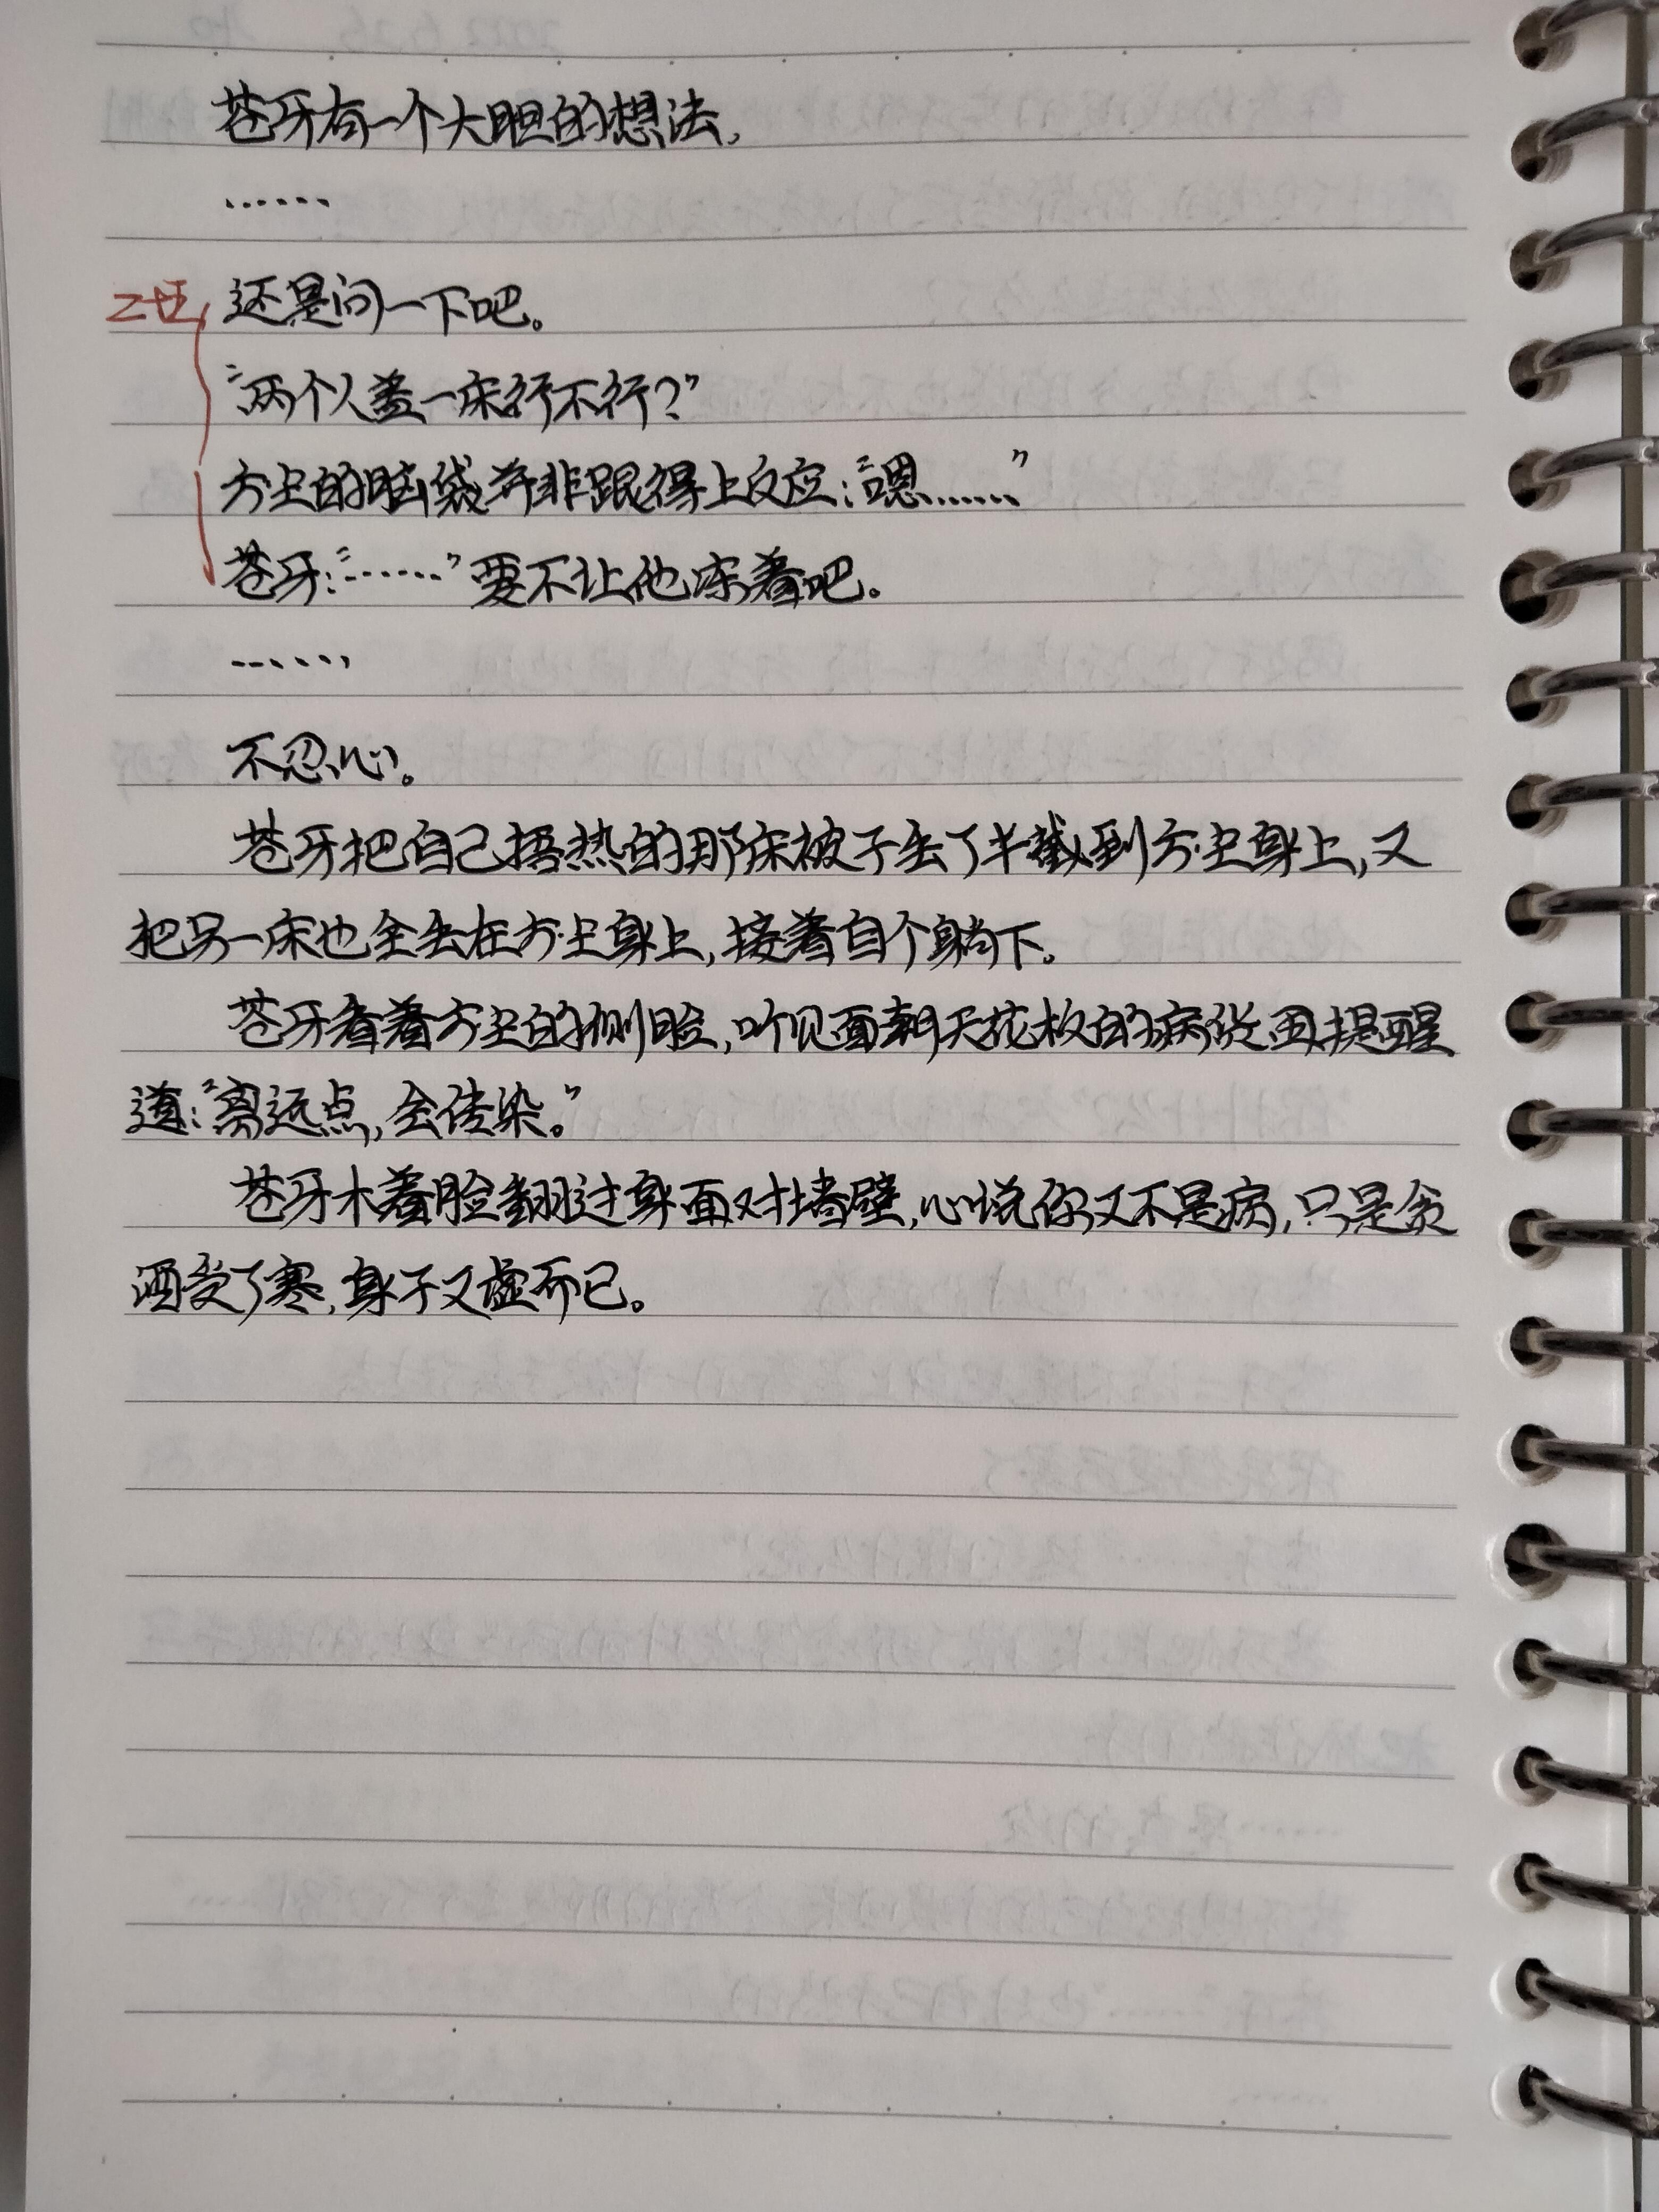 苍牙有一个大胆的想法,
……
还是问一下吧。
“两个人盖一床行不行？”
方史的脑袋并非跟得上反应:“嗯……”
苍牙:“……”要不让他冻着吧。
……
不忍心。
苍牙把自己捂热的那床被子丢了半截到方史身上,又
把另一床也全丢在方史身上,接着自个躺下。
苍牙看着方史的侧脸,听见面朝天花板的病 提醒
道:“离远点,会传染。”
苍牙木着脸翻过身面对墙壁,心说你又不是病,只是贪
酒受了寒,身子又虚而已。